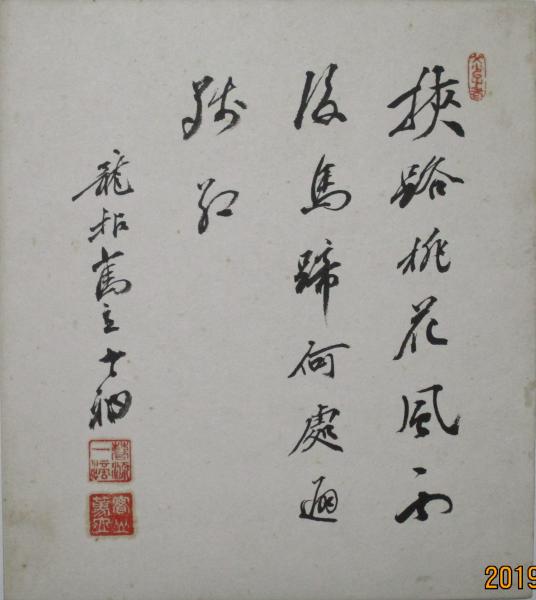 挾路桃花風雨
後馬蹄何處避
殘紅
龍拈舊主十洲
2019